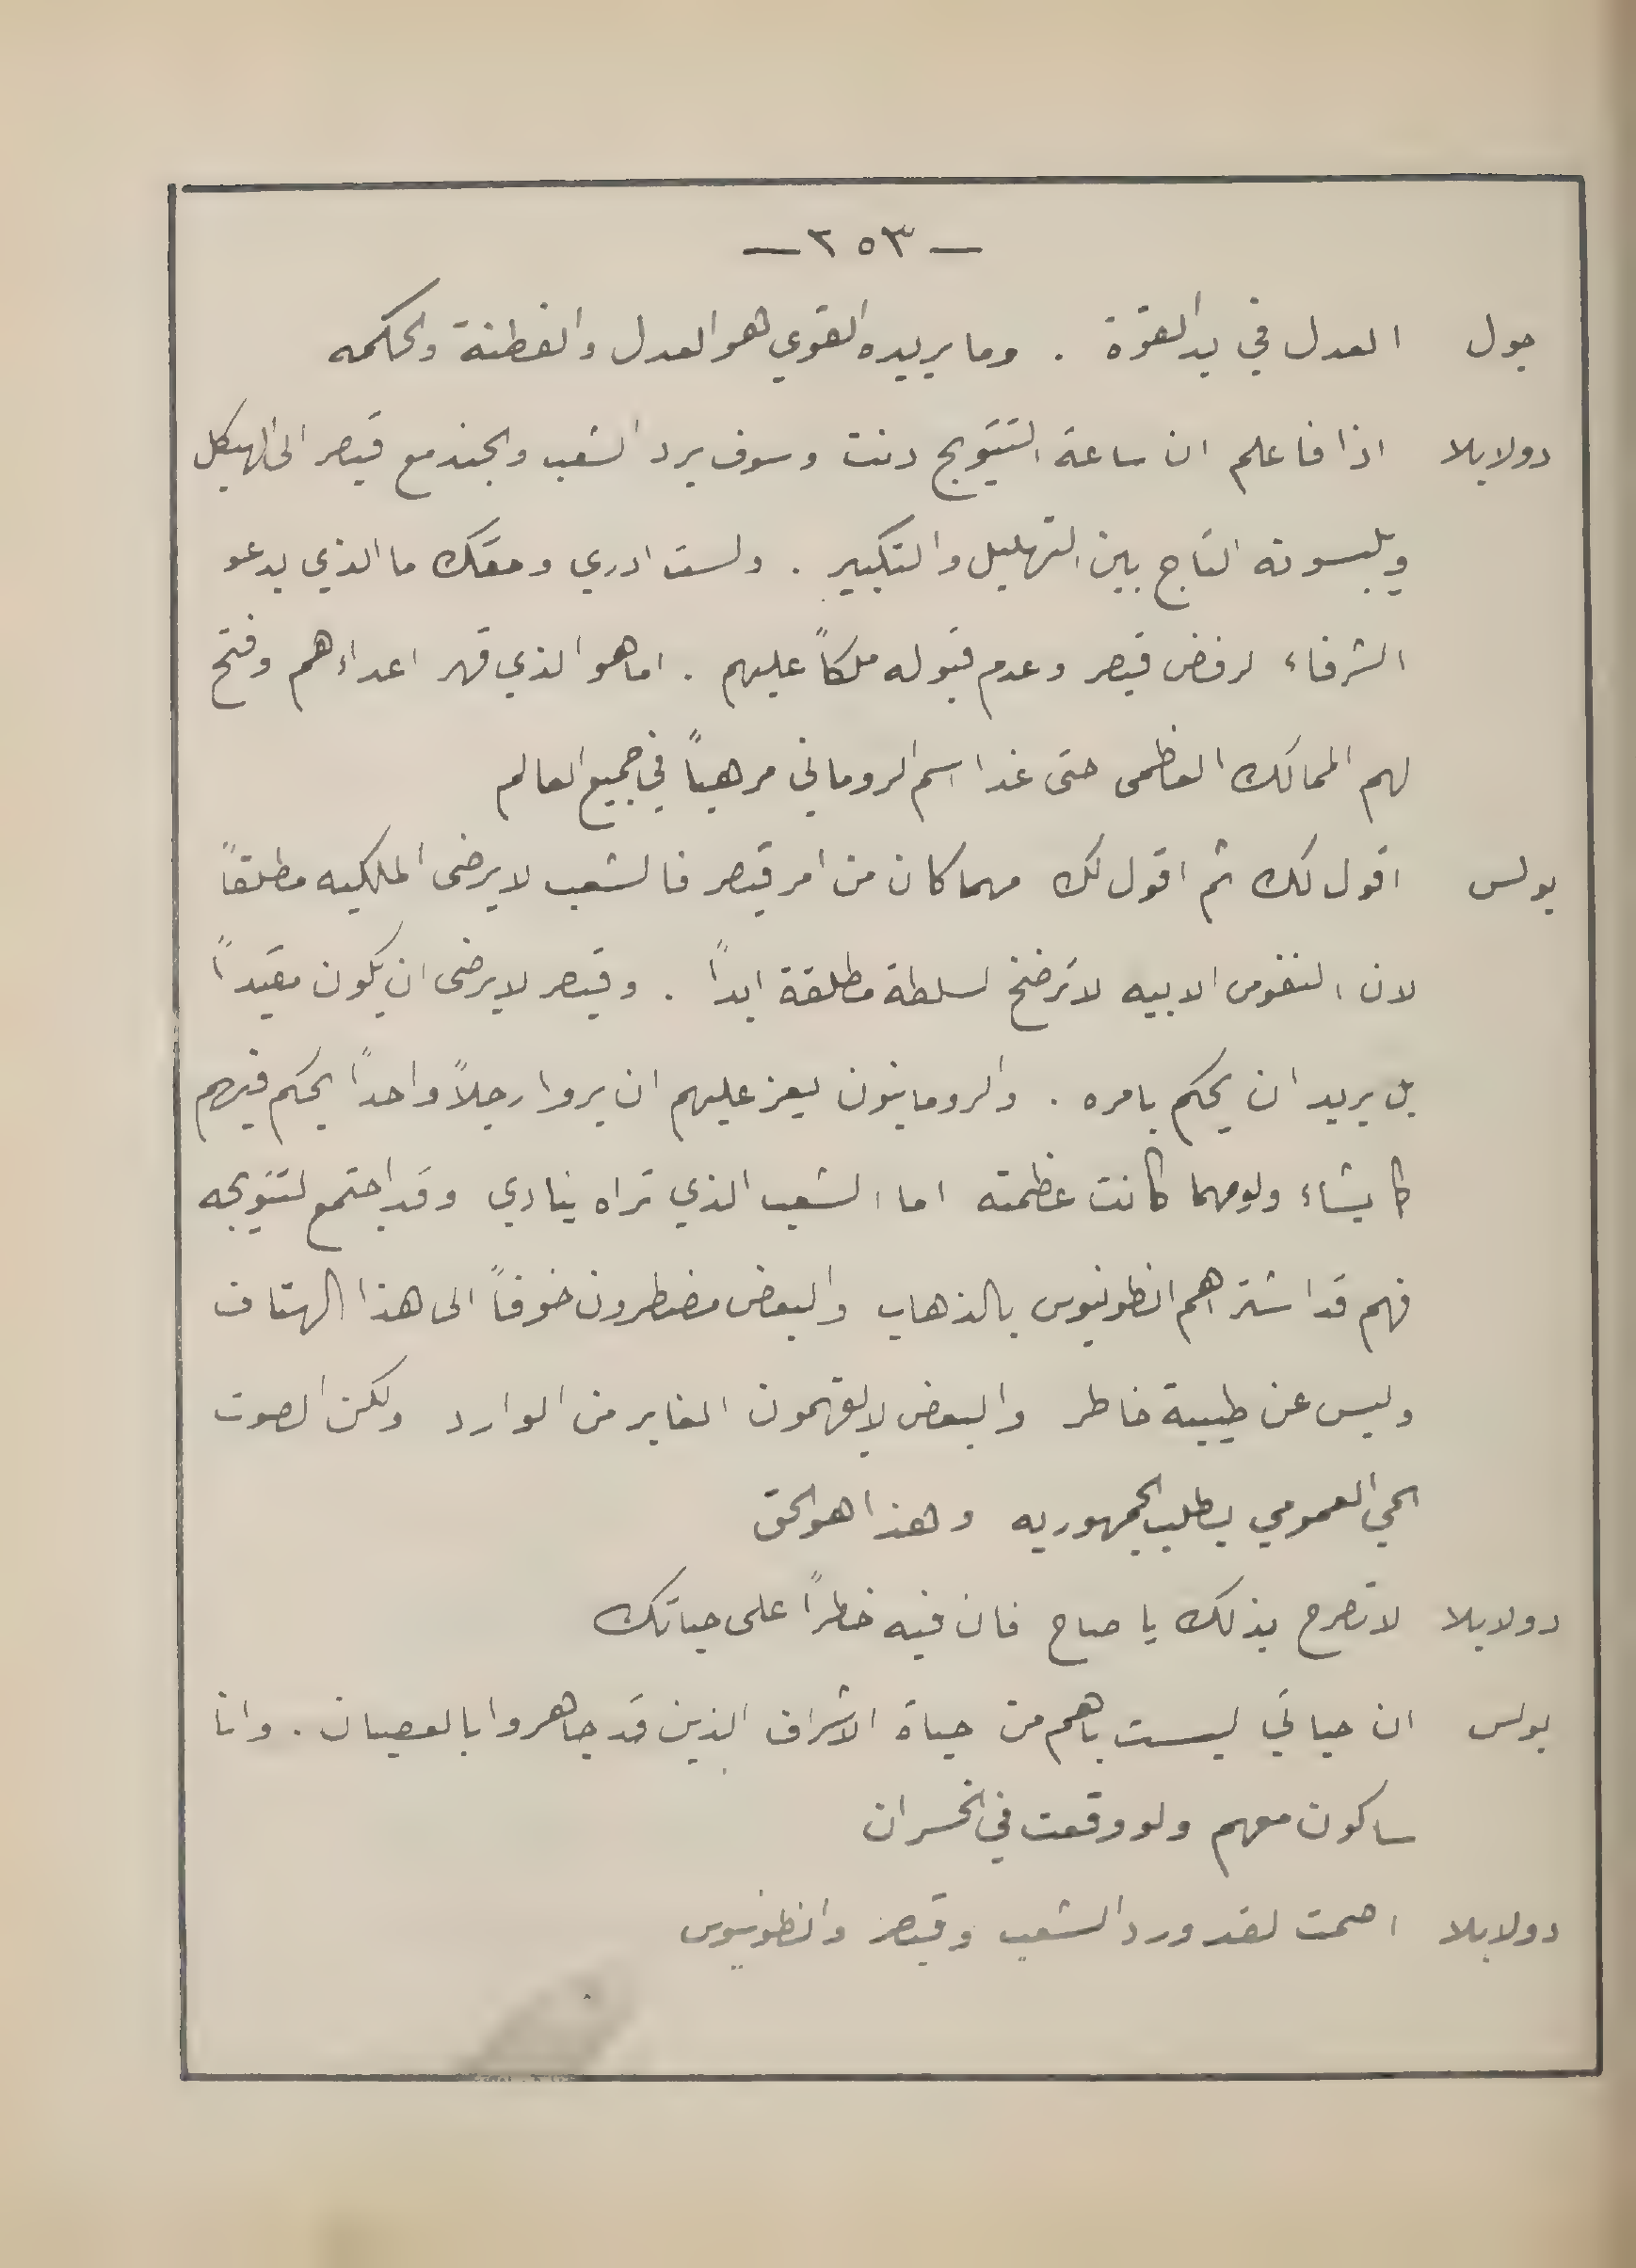 — ٢٥٣ —
جول العدل في يد القوّة . وما يريده القوي هو العدل والفطنة والحكمه
دولابلا اذا فاعلم ان ساعة التتويج دنت وسوف يرد الشعب والجند مع قيصر الى الهيكل
ويلبسونه التاج بين التهليل والتكبير . ولست ادري وحقك ما الذي يدعو
الشرفاء لرفض قيصر وعدم قبوله ملكاً عليهم . اما هو الذي قهر اعداءهم وفتح
لهم الممالك العظمى حتى غدا اسم الروماني مرهباً في جميع العالم
بولس اقول لك ثم اقول لك مهما كان من امر قيصر فالشعب لا يرضى الملكيه مطلقاً
لان النفوس الابيه لا ترضخ لسلطة مطلقة ابداً . وقيصر لا يرضى ان يكون مقيداً
بل يريد ان يحكم بامره . والرومانيون يعز عليهم ان يروا رجلاً واحداً يحكم فيهم
كما يشاء ولو مهما كانت عظمته اما الشعب الذي تراه ينادي وقد اجتمع لتتويجه
فهم قد اشتراهم انطونيوس بالذهاب والبعض مضطرون خوفاً الى هذا الهتاف
وليس عن طيبة خاطر والبعض لا يفهمون الغابر من الوارد ولكن الصوت
الحي العمومي يطلب الجمهوريه وهذا هو الحق
دولابلا لا تصرح بذلك يا صاح فان فيه خطراً على حياتك
بولس ان حياتي ليست باهم من حياة الاشراف الذين قد جاهروا بالعصيان . وانا
ساكون معهم ولو وقعت في الخسران
دولابلا اصمت لقد ورد الشعب وقيصر وانطونيوس